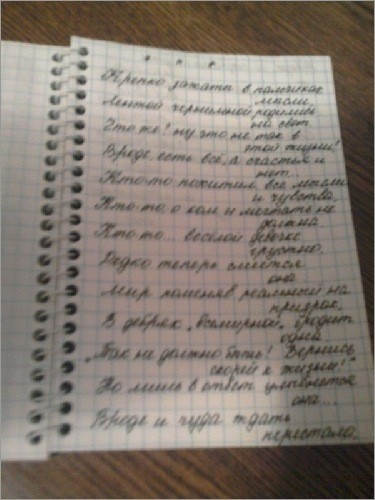 * * *
Крепко зажаты в пальчиках
мысли,
Лентой чернильной родились
на свет.
Что же! ну что не так в
этой жизни!
Вроде есть всё, а счастья и
нет...
Кто-то похитил все мысли
и чувства,
Кто-то, о ком и мечтать не
должна.
Кто-то... весёлой девочке
грустно,
Редко теперь смеётся
она.
Мир поменяв реальный на
призрак,
В дебрях „Всемирной" бродит
одна.
„Так не должно быть! Вернись
скорей к жизни!"
Но лишь в ответ улыбнётся
она...
Вроде и чуда ждать
перестала